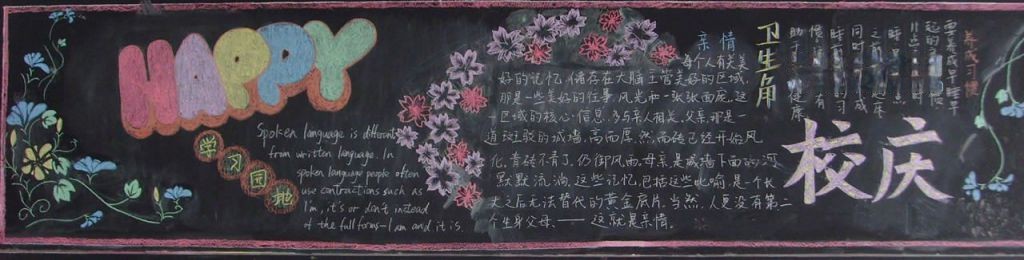 HAPPY
学习园地
Spoken language is different
from written language. In
spoken language people often
use contractions such as
I'm, it's or don't instead
of the full forms—I am and it is.
亲情
每个人有关美
好的记忆,储存在大脑主管美好的区域,
那是一些美好的往事、风光和一张张面庞.这
一区域的核心信息,多与亲人相关.父亲那是一
道斑驳的城墙,高而厚,然而砖已经开始风
化,青砖不青了,仍御风雨.母亲是城墙下面的河,
默默流淌.这些记忆,包括这些比喻,是一个长
大之后无法替代的黄金底片.当然,人更没有第二
个生身父母.——这就是亲情.
卫生角
养成习惯
要养成早睡早
校庆